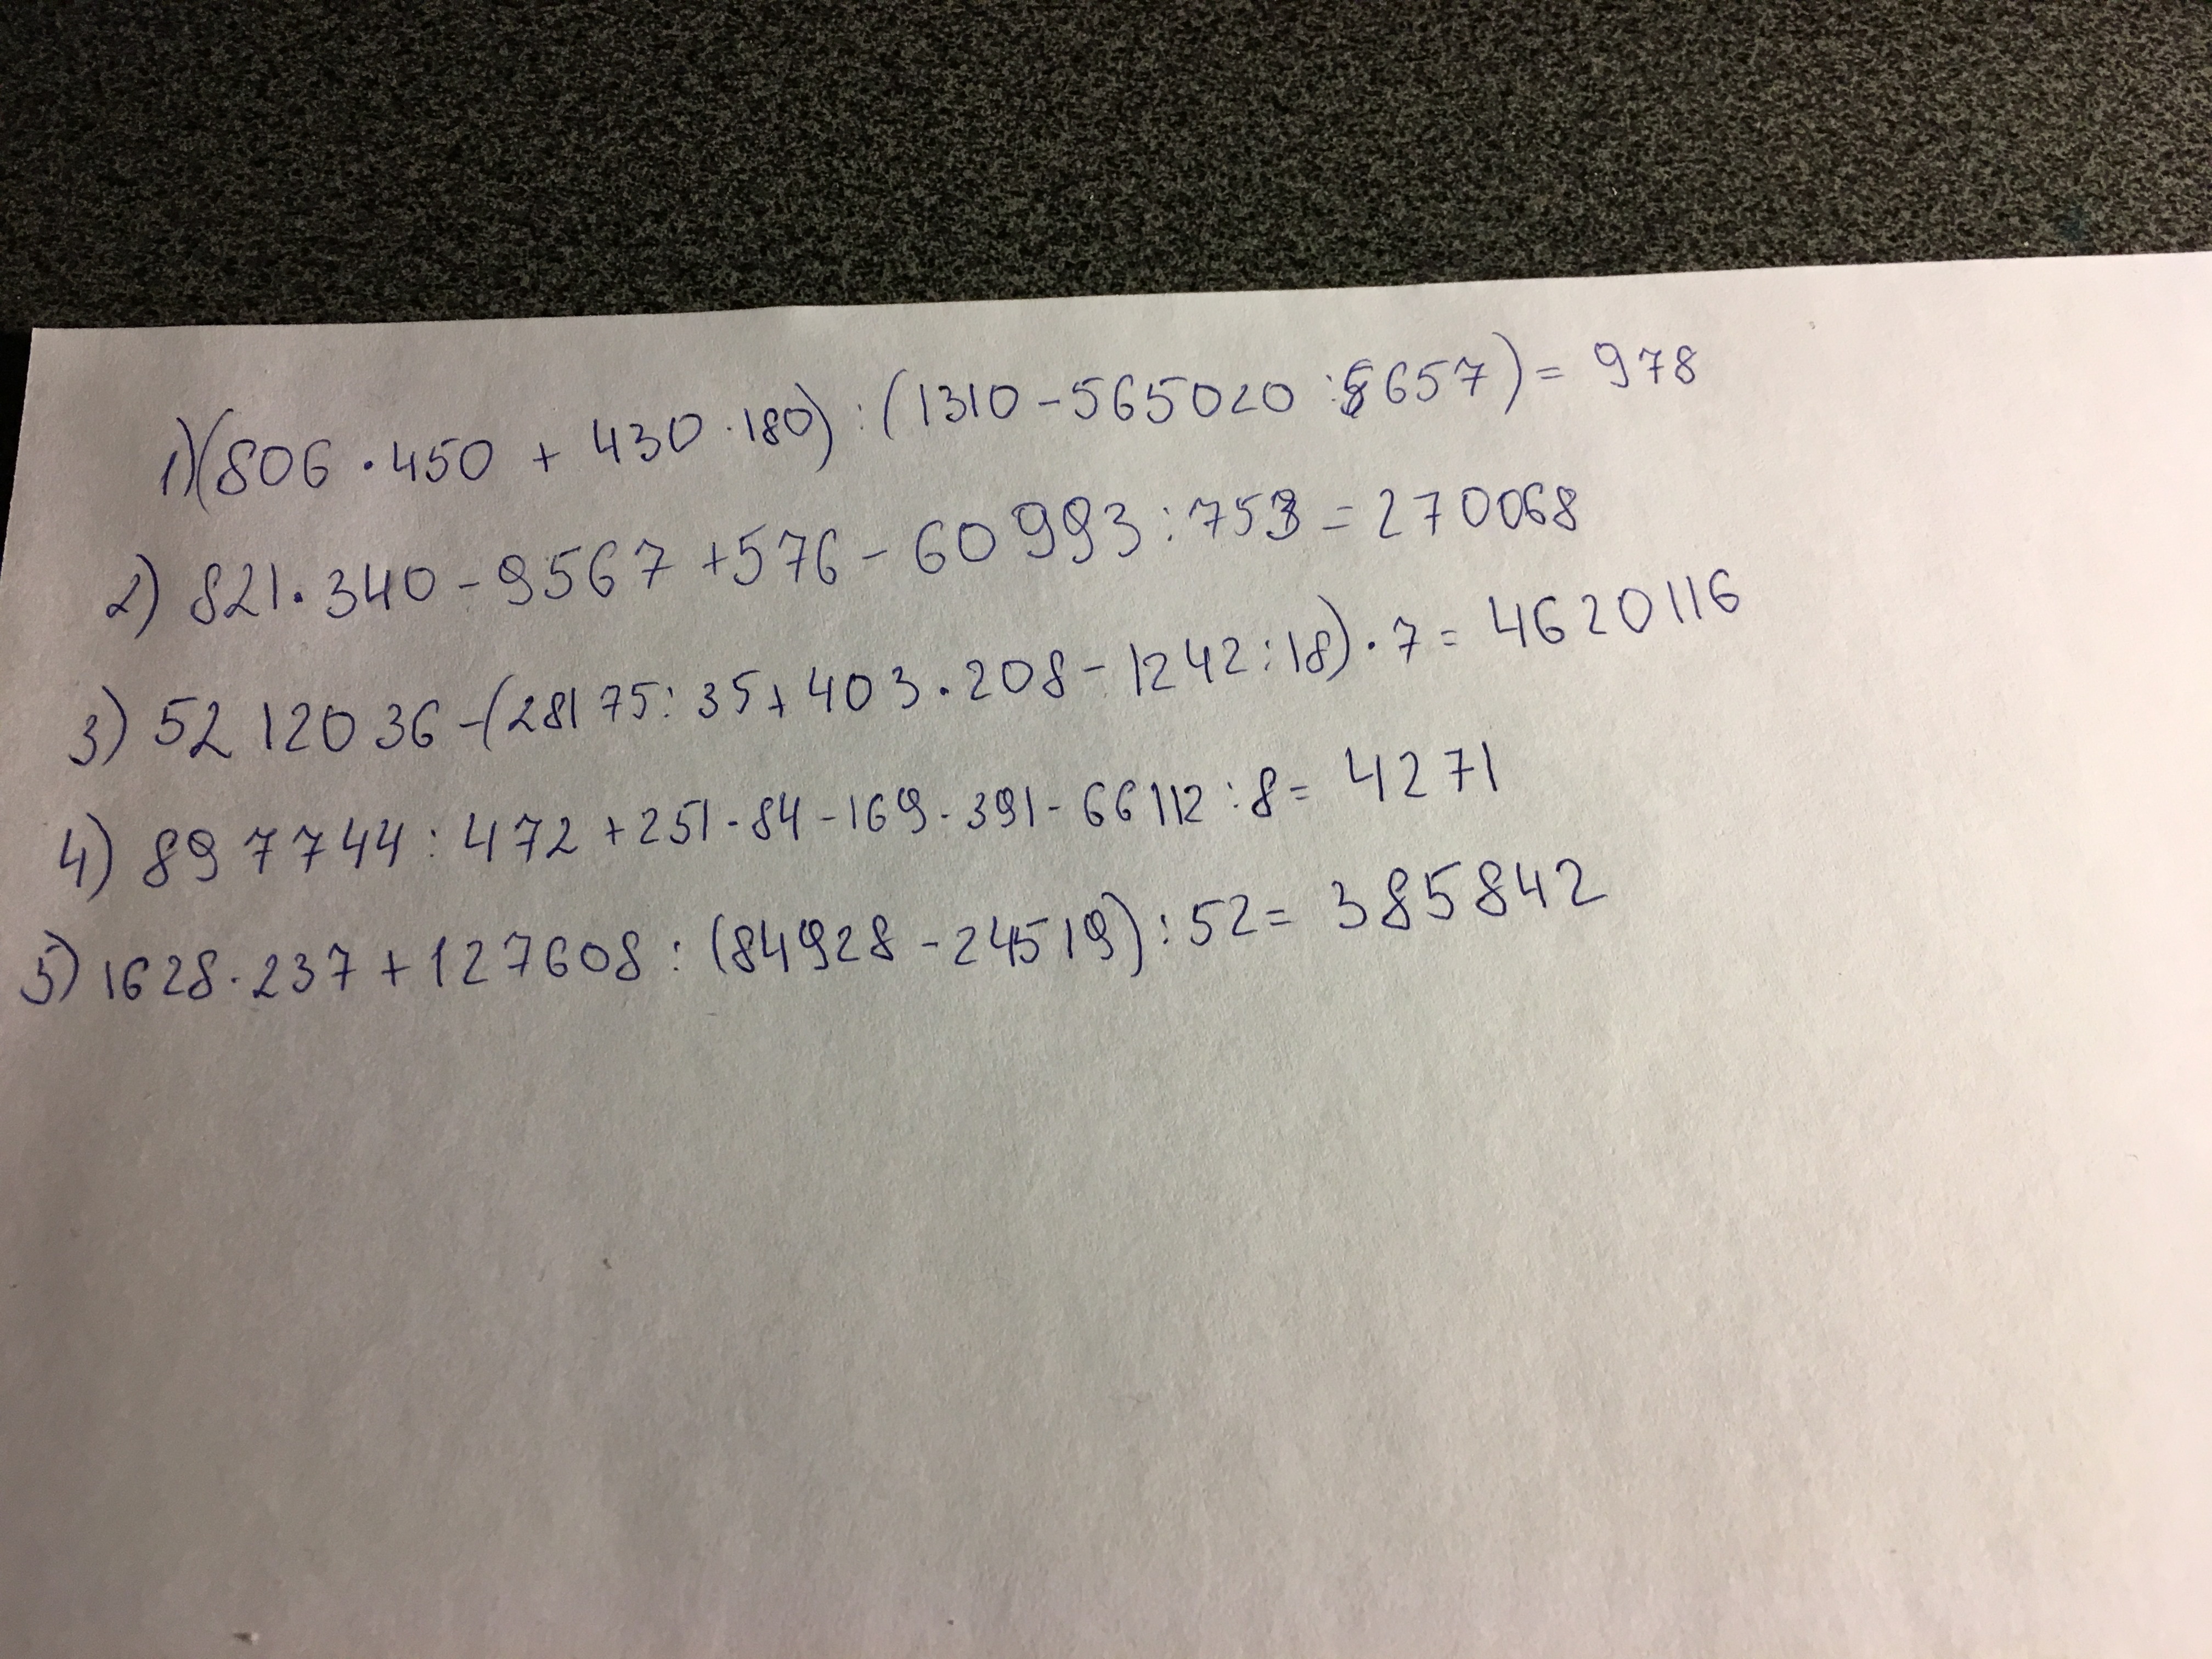 1) (806 · 450 + 430 · 180) : (1310 - 565020 : 5657) = 978
2) 821 · 340 - 9567 + 576 - 60993 : 753 = 270068
3) 5212036 - (28175 : 35 + 403 · 208 - 1242 : 18) · 7 = 4620116
4) 897744 : 472 + 251 · 84 - 169 - 391 - 66112 : 8 = 4271
5) 1628 · 237 + 127608 : (84928 - 24519) : 52 = 385842